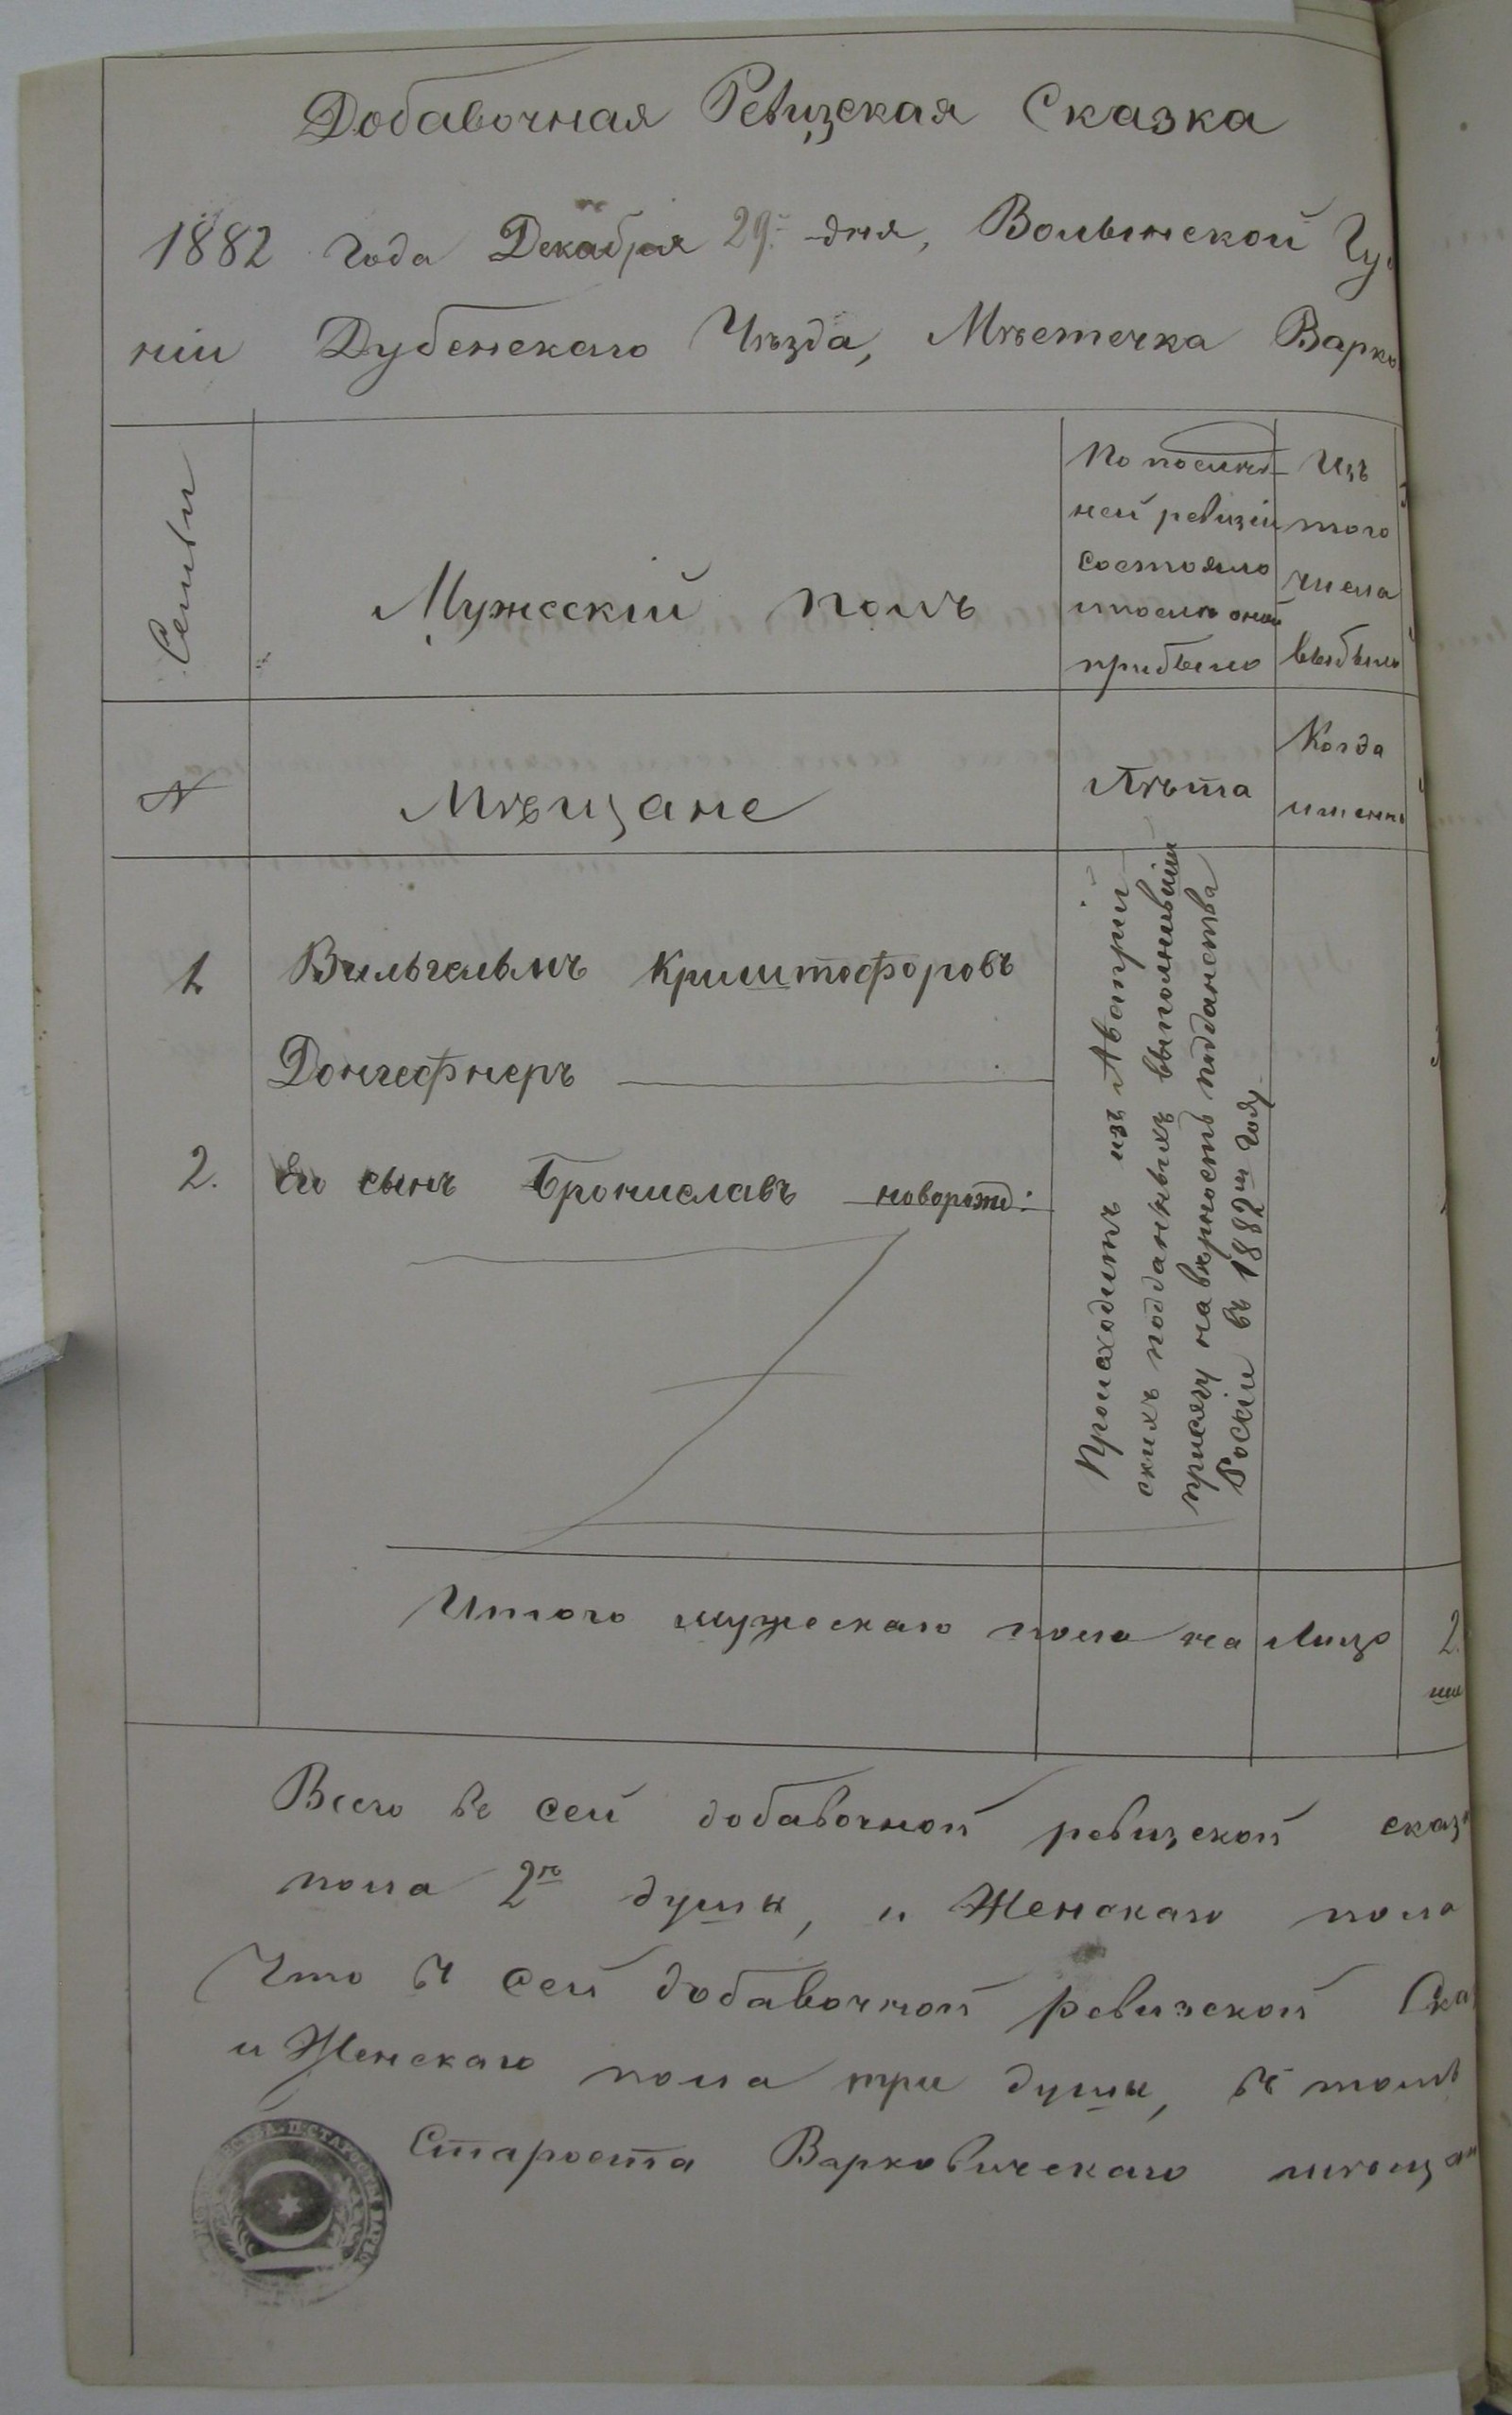 Добавочная Ревизская Сказка
1882 года Декабря 29. дня, Волынской Гу
ніи Дубенскаго Уѣзда, Мѣстечка Варко
Семьи
Мужескій полъ
По послѣд
ней ревизіи
состояло
и послѣ оной
прибыло
Изъ
того
числа
выбыло
№
Мѣщане
Лѣта
Когда
именно
1
Вильгельмъ Криштофоровъ
Донгефнеръ
2.
Его сынъ Брониславъ новорожд:
Происходитъ изъ Австрій
скихъ подданныхъ выполнившій
присягу на вѣрность подданства
Россіи въ 1882м году
Итого мужескаго пола на лицо 2.
Всего въ сей добавочной ревизской сказ
пола 2ѣ души, и Женскаго пола
Что въ сей добавочной ревизской Ска
и Женскаго пола три души, въ томъ
Староста Варковическаго мѣщан